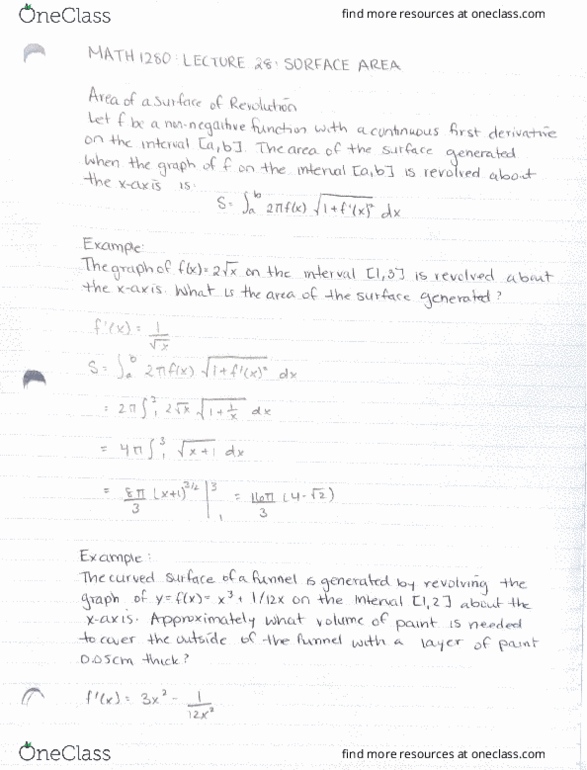 OneClass find more resources at oneclass.com
MATH 1280: LECTURE 28: SURFACE AREA
Area of a Surface of Revolution
Let f be a non-negative function with a continuous first derivative
on the interval [a,b]. The area of the surface generated
when the graph of f on the interval [a,b] is revolved about
the x-axis is.
S = ∫ₐᵇ 2πf(x) √(1+f'(x)²) dx
Example:
The graph of f(x)= 2√x on the interval [1,3] is revolved about
the x-axis. What is the area of the surface generated?
f'(x) = 1/√x
S = ∫ₐᵇ 2πf(x) √(1+f'(x)²) dx
= 2π ∫₁³ 2√x √(1+1/x) dx
= 4π ∫₁³ √(x+1) dx
= 8π/3 (x+1)^(3/2) |₁³ = 16π/3 (4-√2)
Example:
The curved surface of a funnel is generated by revolving the
graph of y=f(x)= x³ + 1/12x on the interval [1,2] about the
x-axis. Approximately what volume of paint is needed
to cover the outside of the funnel with a layer of paint
0.05cm thick?
f'(x) = 3x² - 1/12x²
OneClass find more resources at oneclass.com